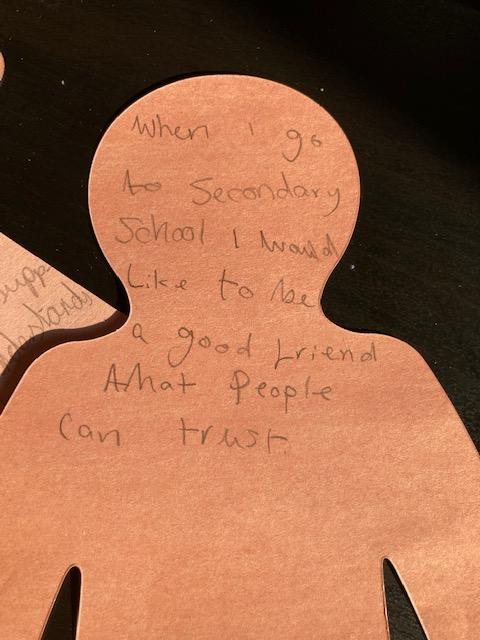 When i go
to Secondary
School I would
Like to be
a good friend
that people
can trust.
supp